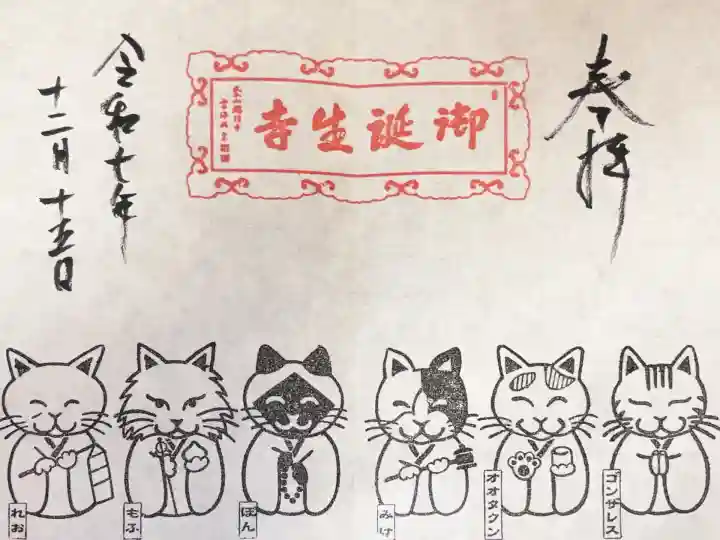 奉拝
御誕生寺
令和七年
十二月十五日
れお
もふ
ぽん
みけ
オオタクン
ゴンザレス